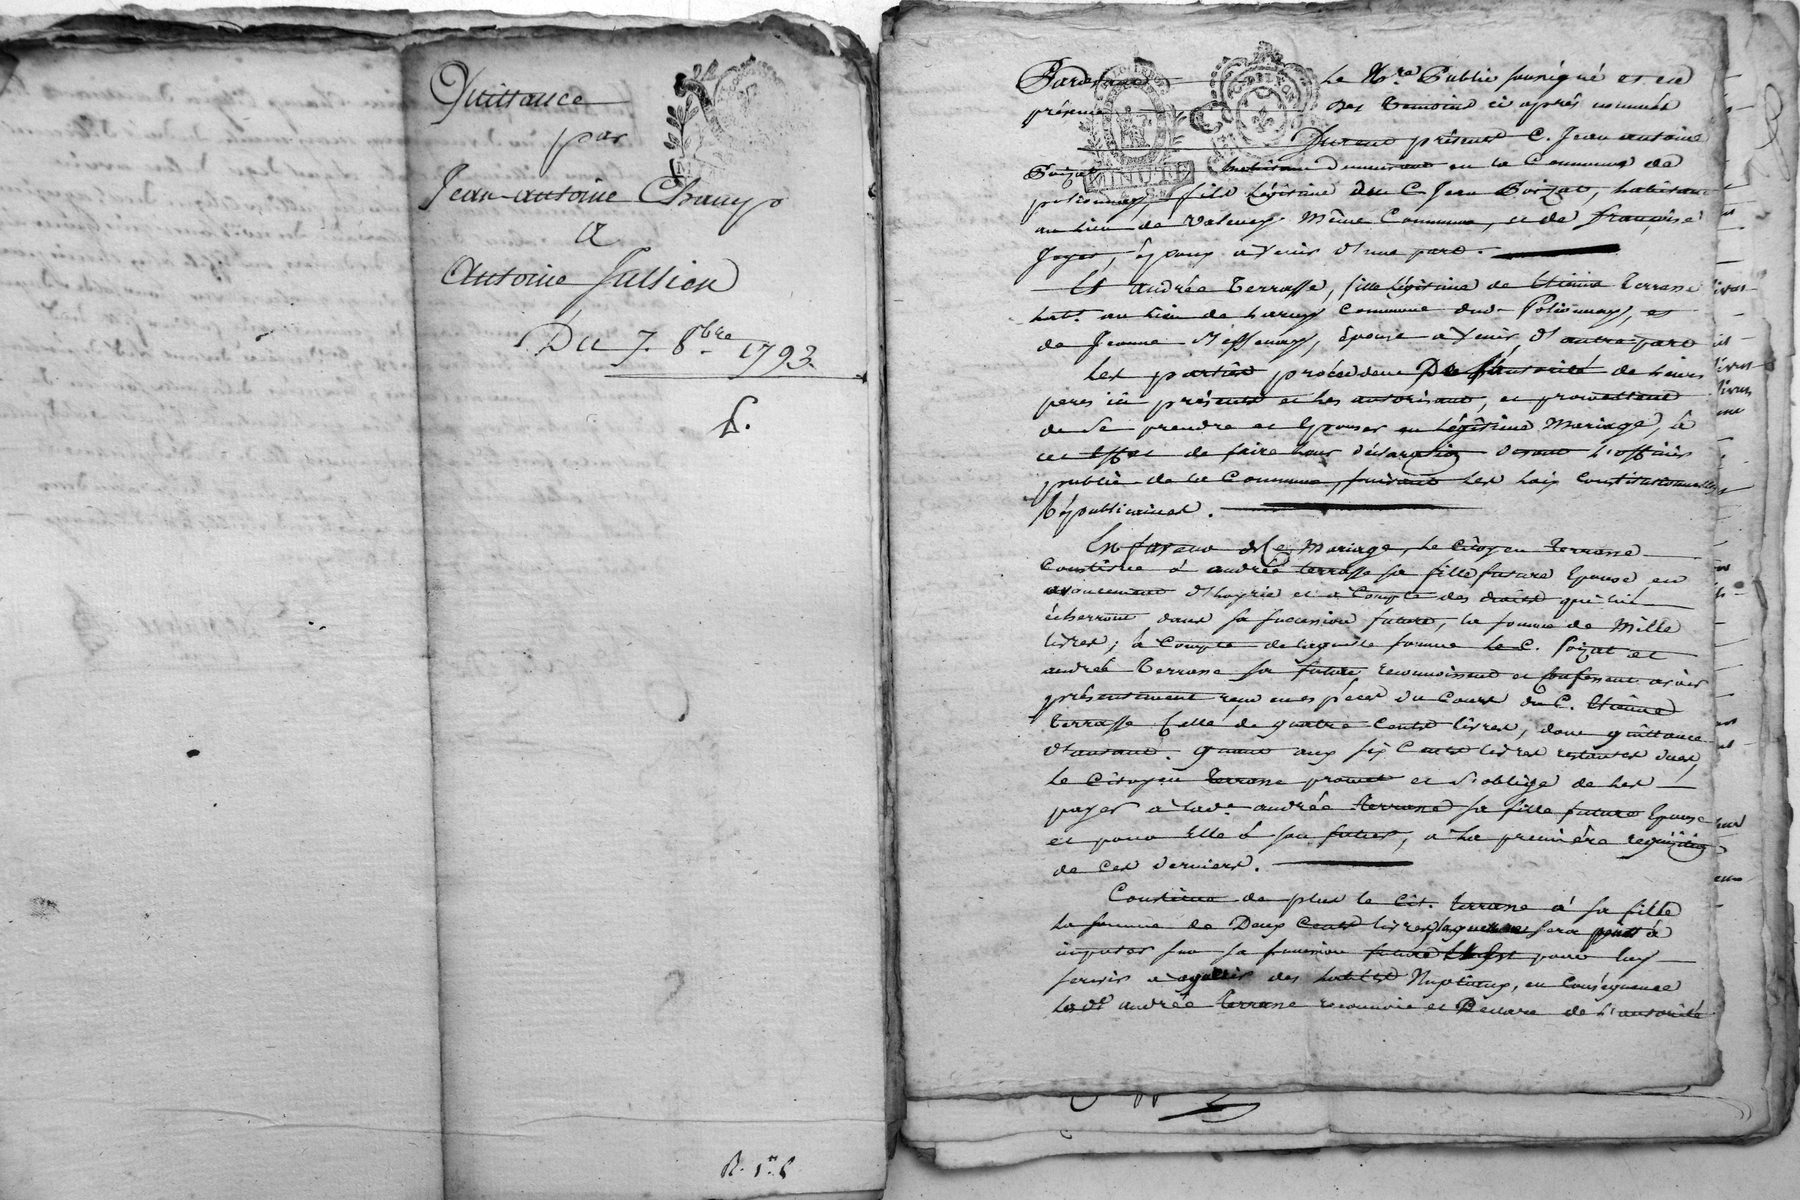 Quittance
par
Jean-antoine Champ
a
Antoine Jullien
Du 7. 8bre 1793.
R. 1# 6
Pardt le Nre Public soussigné et en
présence des temoins ci après nommés
MINUTE
Furent présents C. Jean antoine
Poizat habitant demeurant en la Commune de
polionnay, fils légitime du C. Jean Poizat, habitant
au lieu de Valency Même Commune, et de françoise
Joyet, époux à Venir d'une part.
Et andrée Terrasse, fille légitime de Etienne terrasse
habt. au lieu de Commune dud. Polionnay, et
de Jeanne Epouse a Venir, d'autre part
Les parties procédant De l'autorité de leurs
peres ici présents et les autorisant, ont promettent
de Se prendre et Epouser en légitime Mariage, à
cet effet de faire leurs déclaration devant l'officier
public de la Commune, suivant les loix Constitutionnelles
Républicaines.
En faveur de Ce Mariage, le Citoyen terrasse
Constitue à andrée terrasse sa fille future Epouse en
avancement d'hoyrie et à Compte des droits qui lui
écherront dans sa succession future, la somme de Mille
livres; à Compte de laquelle somme le C. Poizat et
andrée terrasse sa future, reconnoissent et Confessent avoir
présentement reçu en espèces du Cours du C. Etienne
terrasse Celle de quatre Cents livres, dont quittance
d'autant. quant aux six Cents livres restantes dues,
le Citoyen terrasse promet et S'oblige de les
payer à lade. andrée terrasse sa fille future Epouse
et pour Elle à son futur, à la première requisition
de Ces derniers.
Constitue de plus le Cit. terrasse à sa fille
la somme de Deux Cents livres, laquelle sera
imputer sur sa succession future pour luy
servir à des habits Nuptiaux, en Conséquence
lade. andrée terrasse reconnoit et Declare de l'autorité